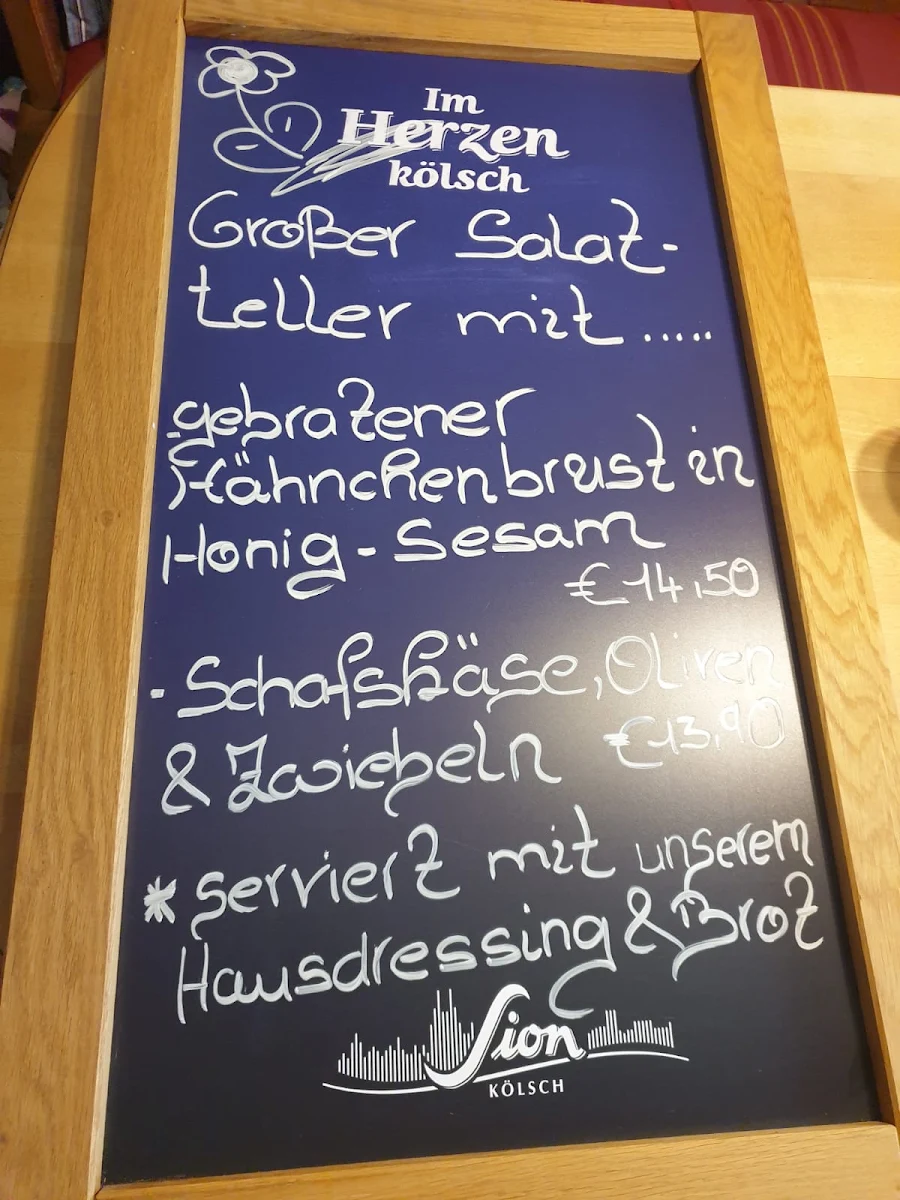 Im
Herzen
kölsch
Großer Salat-
teller mit .....
-gebratener
Hähnchenbrust in
Honig - Sesam
€ 14,50
- Schafskäse, Oliven
& Zwiebeln € 13,90
* serviert mit unserem
Hausdressing & Brot
Sion
KÖLSCH